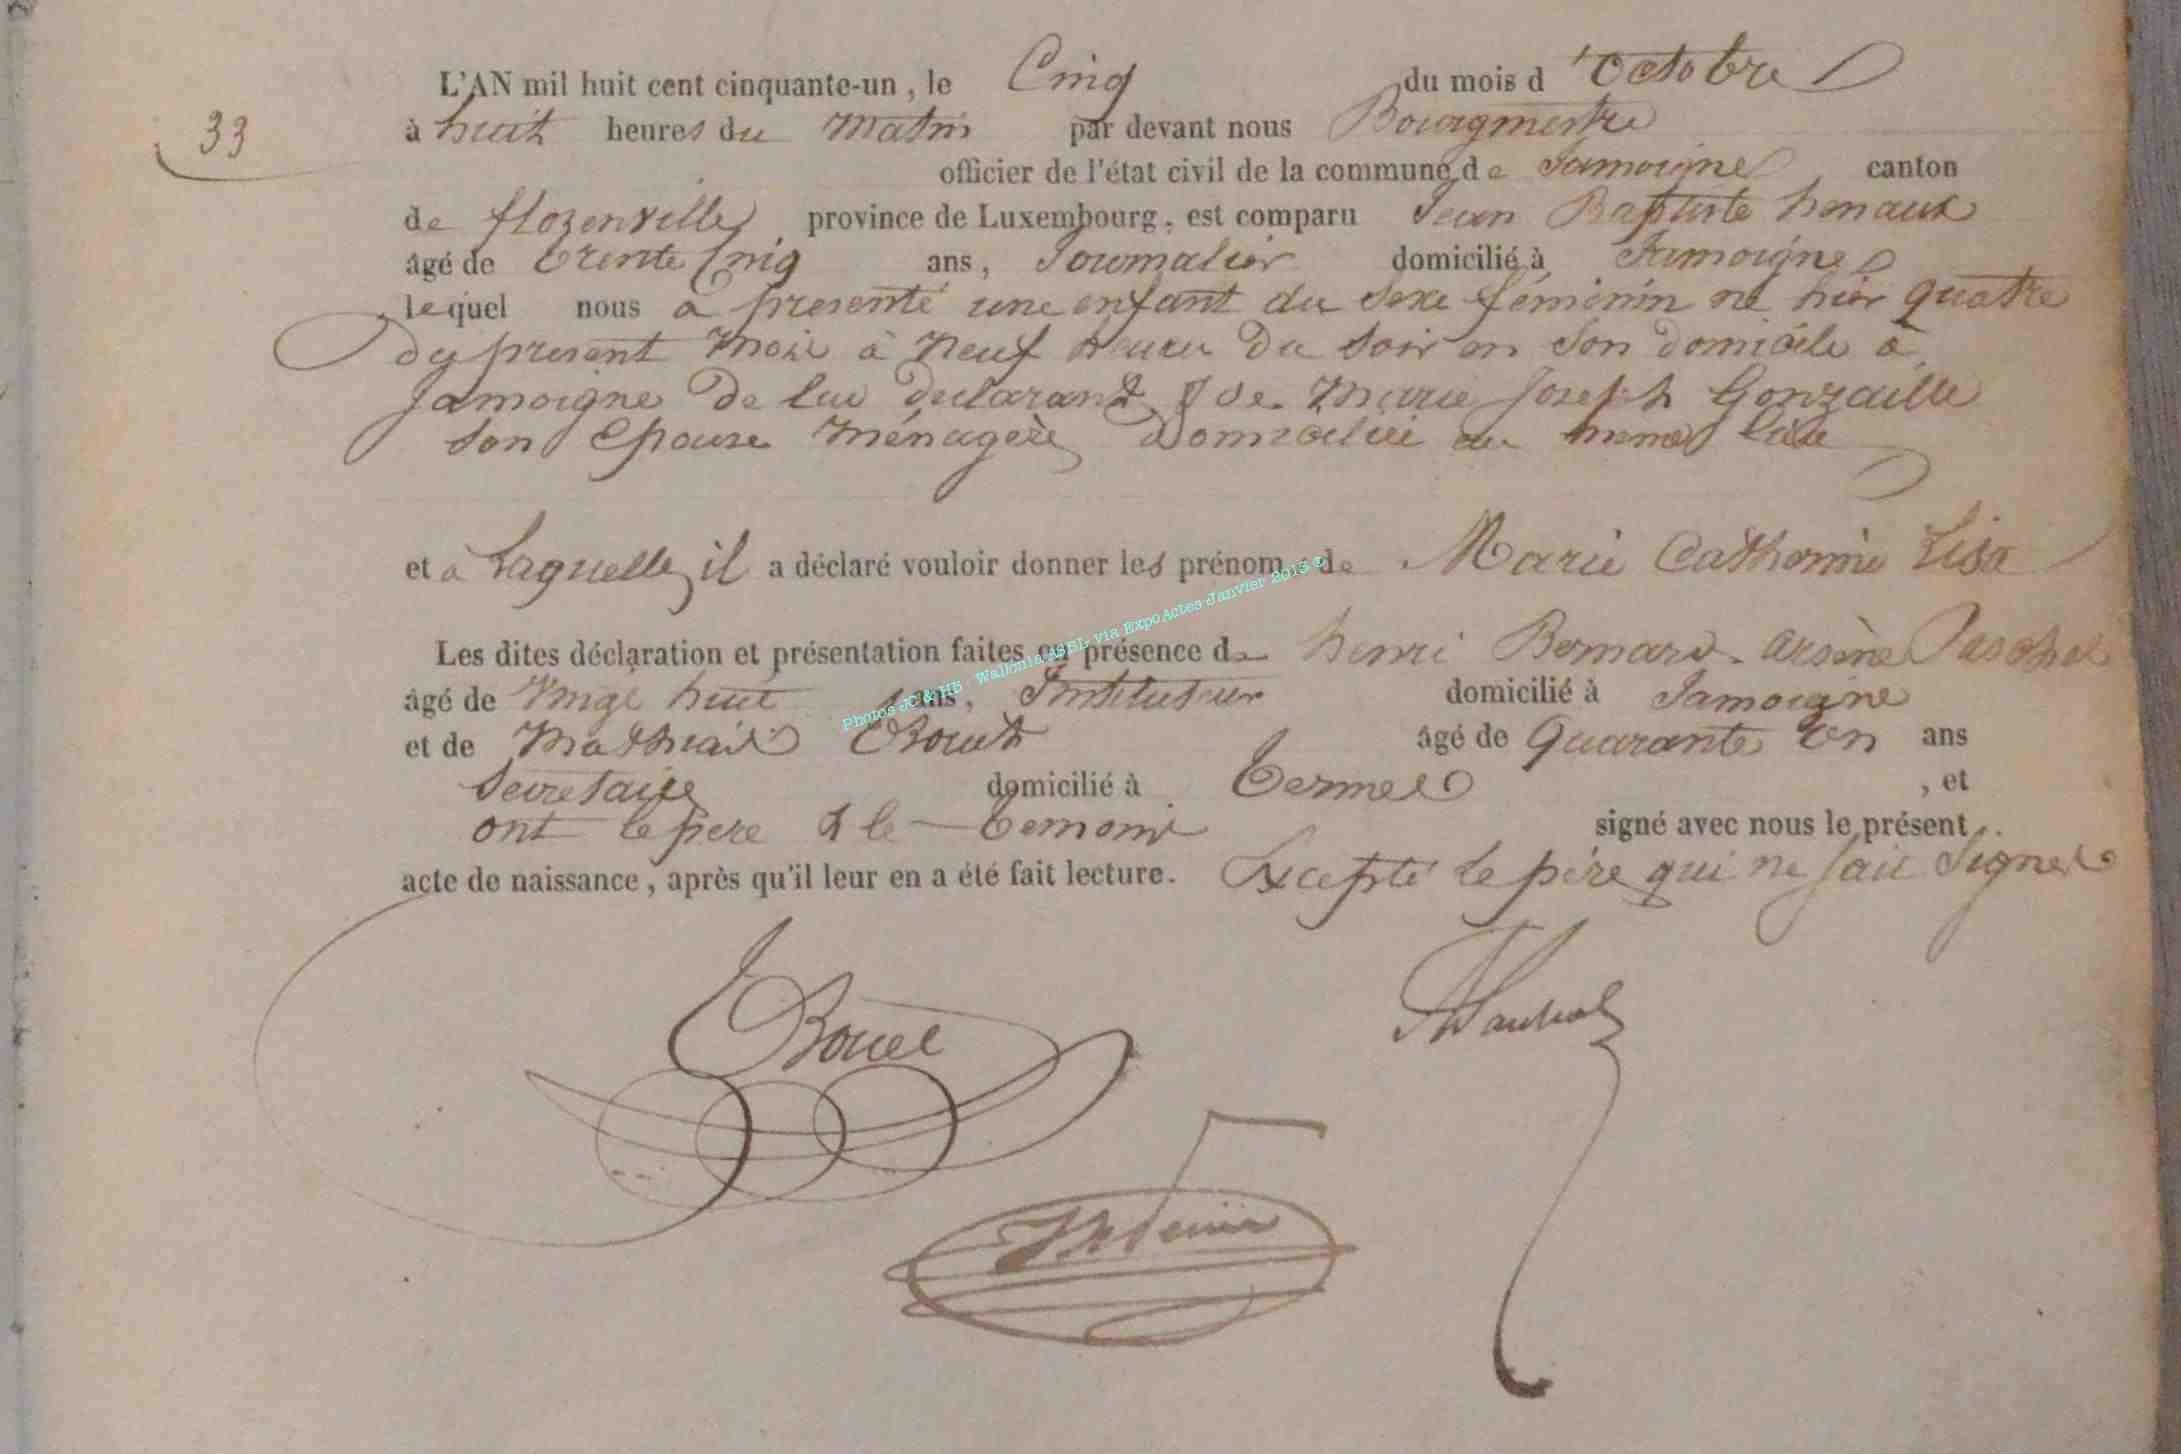 L'AN mil huit cent cinquante-un, le Cinq du mois d'octobre
33
à huit heures du matin par devant nous Bourgmestre
officier de l'état civil de la commune de Jamoigne canton
de florenville province de Luxembourg, est comparu Jean Baptiste henaux
âgé de trente Cinq ans, Journalier domicilié à Jamoigne
lequel nous a presenté une enfant du sexe féminin né hier quatre
du present mois à neuf heures du soir en son domicile à
Jamoigne de lui declarant & de Marie Joseph Gonzaille
son Epouse Ménagère domiciliée au meme lieu
et a Laquelle il a déclaré vouloir donner les prénom de Marie Catherine Lisa
Les dites déclaration et présentation faites en présence de henri Bernard arsène
âgé de Vingt huit ans, Instituteur domicilié à Jamoigne
et de Mathias Bouet âgé de Quarante un ans
Secretaire domicilié à Termes , et
ont le père & le temoins signé avec nous le présent
acte de naissance, après qu'il leur en a été fait lecture. Excepté le père qui ne sait signer
Bouel
Photos JC & HB Wallonia ASBL via ExpoActes Janvier 2013 ©